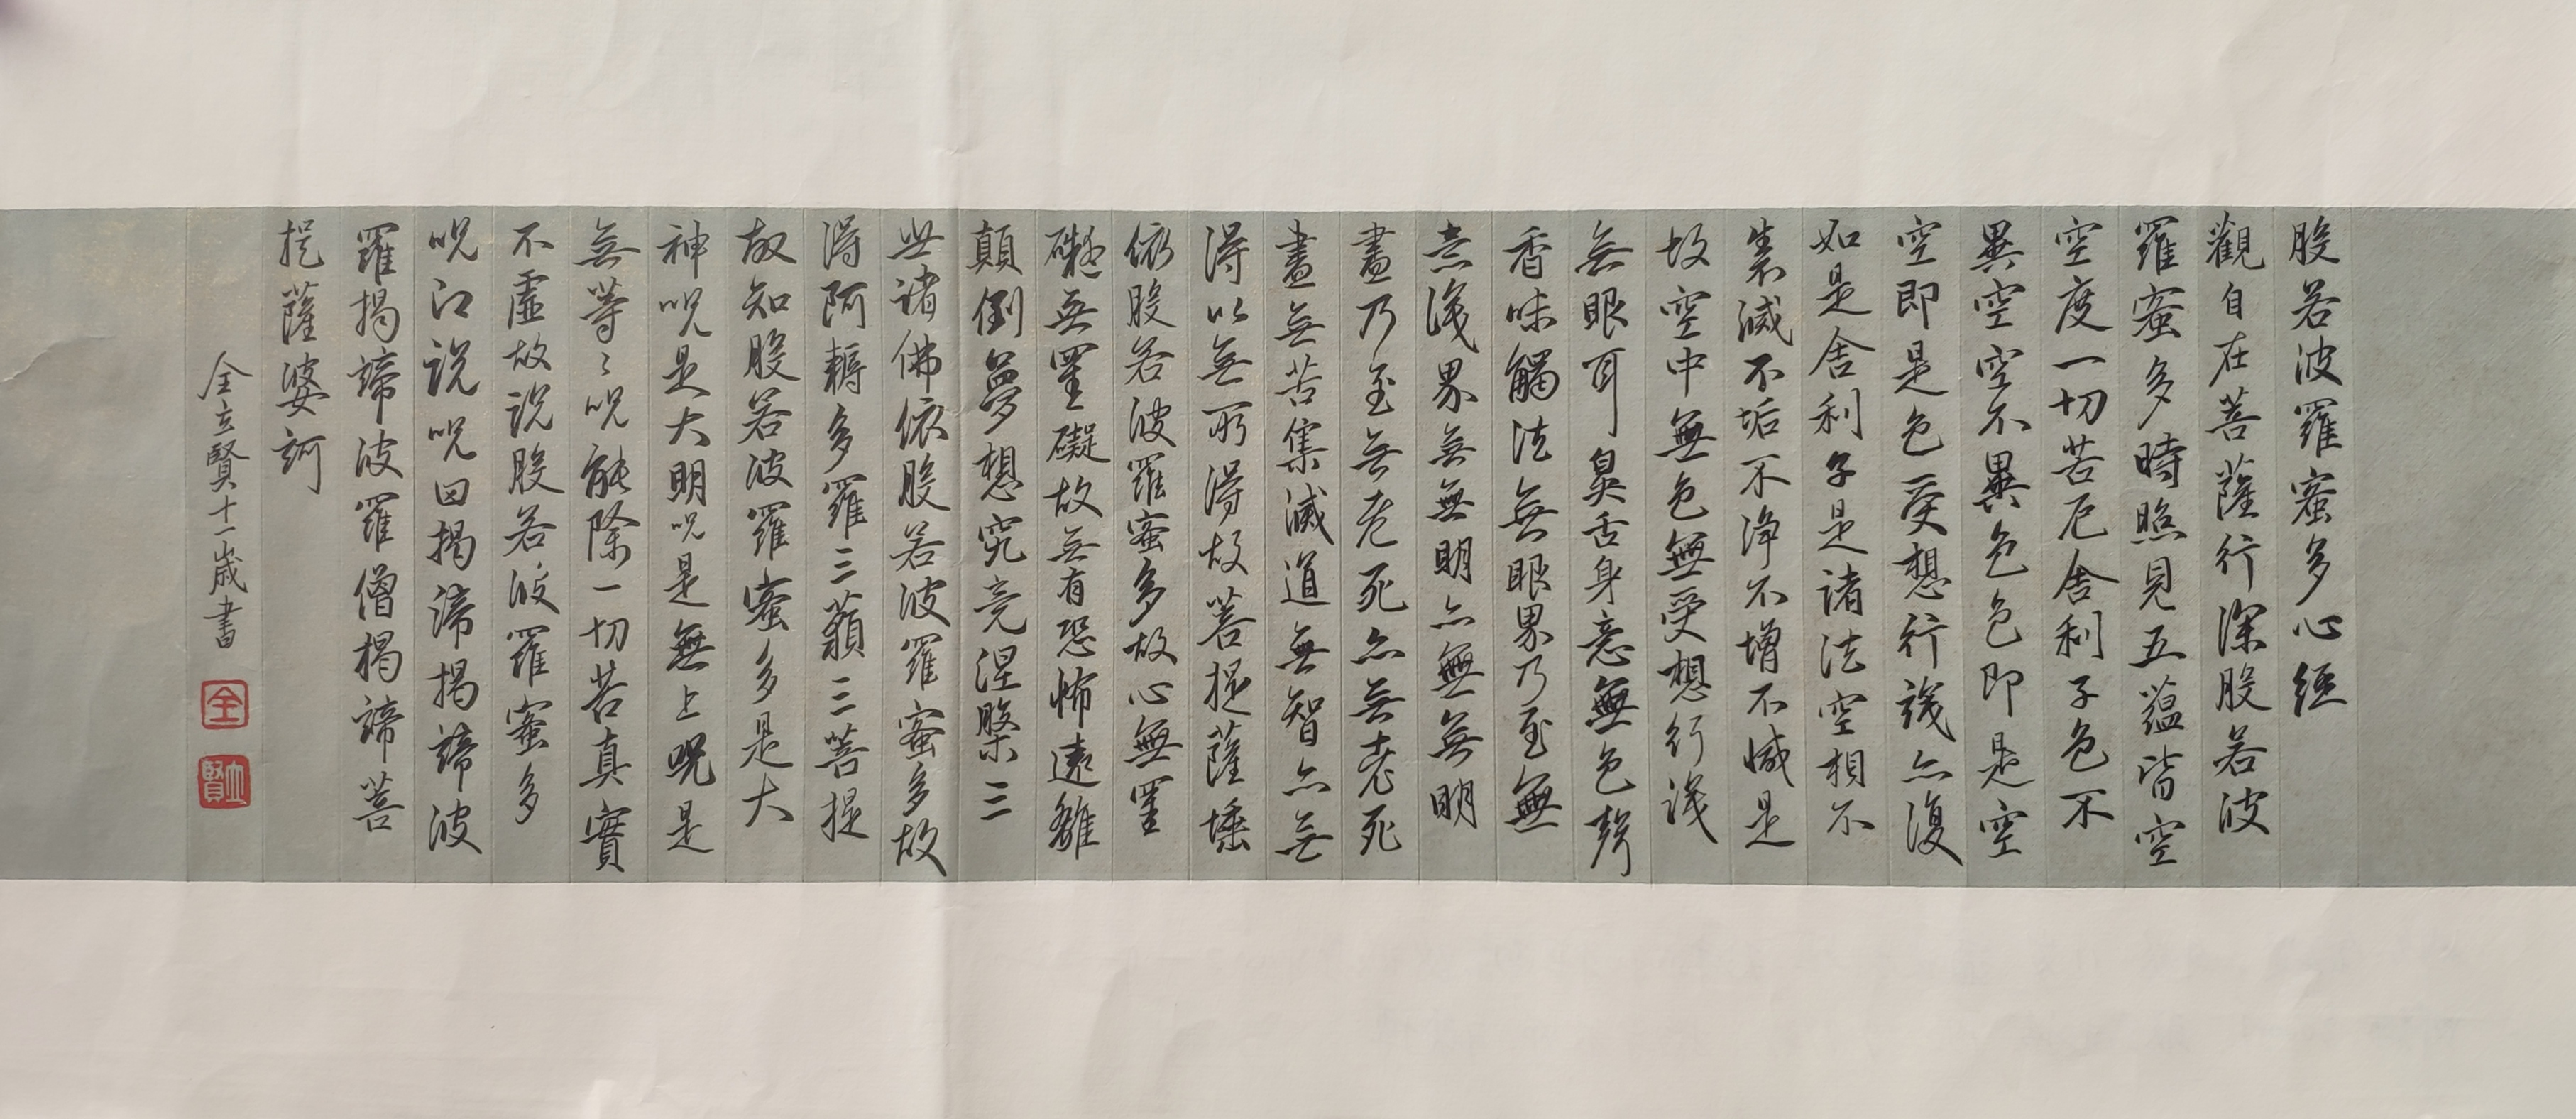 般若波羅蜜多心經
觀自在菩薩行深般若波
羅蜜多時照見五蘊皆空
空度一切苦厄舍利子色不
異空空不異色色即是空
空即是色受想行識亦復
如是舍利子是諸法空相不
生不滅不垢不淨不增不減是
故空中無色無受想行識
無眼耳鼻舌身意無色聲
香味觸法無眼界乃至無
意識界無無明亦無無明
盡乃至無老死亦無老死
盡無苦集滅道無智亦無
得以無所得故菩提薩埵
依般若波羅蜜多故心無罣
礙無罣礙故無有恐怖遠離
顛倒夢想究竟涅槃三
世諸佛依般若波羅蜜多故
得阿耨多羅三藐三菩提
故知般若波羅蜜多是大
神呪是大明呪是無上呪是
無等〻呪能除一切苦真實
不虛故說般若波羅蜜多
呪即說呪曰揭諦揭諦波
羅揭諦波羅僧揭諦菩
提薩婆訶
全立賢十一歲書
全
立賢